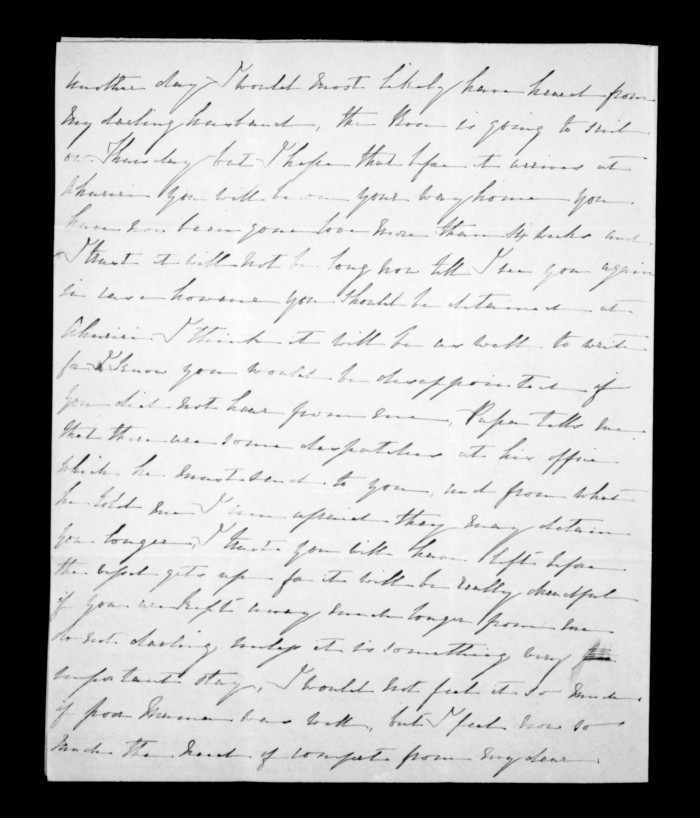 another day I would most likely have heard from
my darling husband, the Rose is going to sail
on Thursday but I hope that before it arrives at
Ahuriri you will be on your way home you
have now been gone love more than six weeks and
I trust it will not be long now till I see you again
in case however you should be detained at
Ahuriri I think it will be as well to write
for I know you would be disappointed if
you did not hear from me, Papa tells me
that there are some despatches at his office
which he must send to you, and from what
he told me I am afraid they may detain
you longer, I trust you will have left before
the vessel gets up for it will be really dreadful
if you are kept away much longer from me
do not darling unless it is something very
important stay, I would not feel it so much
if poor Mamma was well, but I feel now so
much the need of comfort from my dear